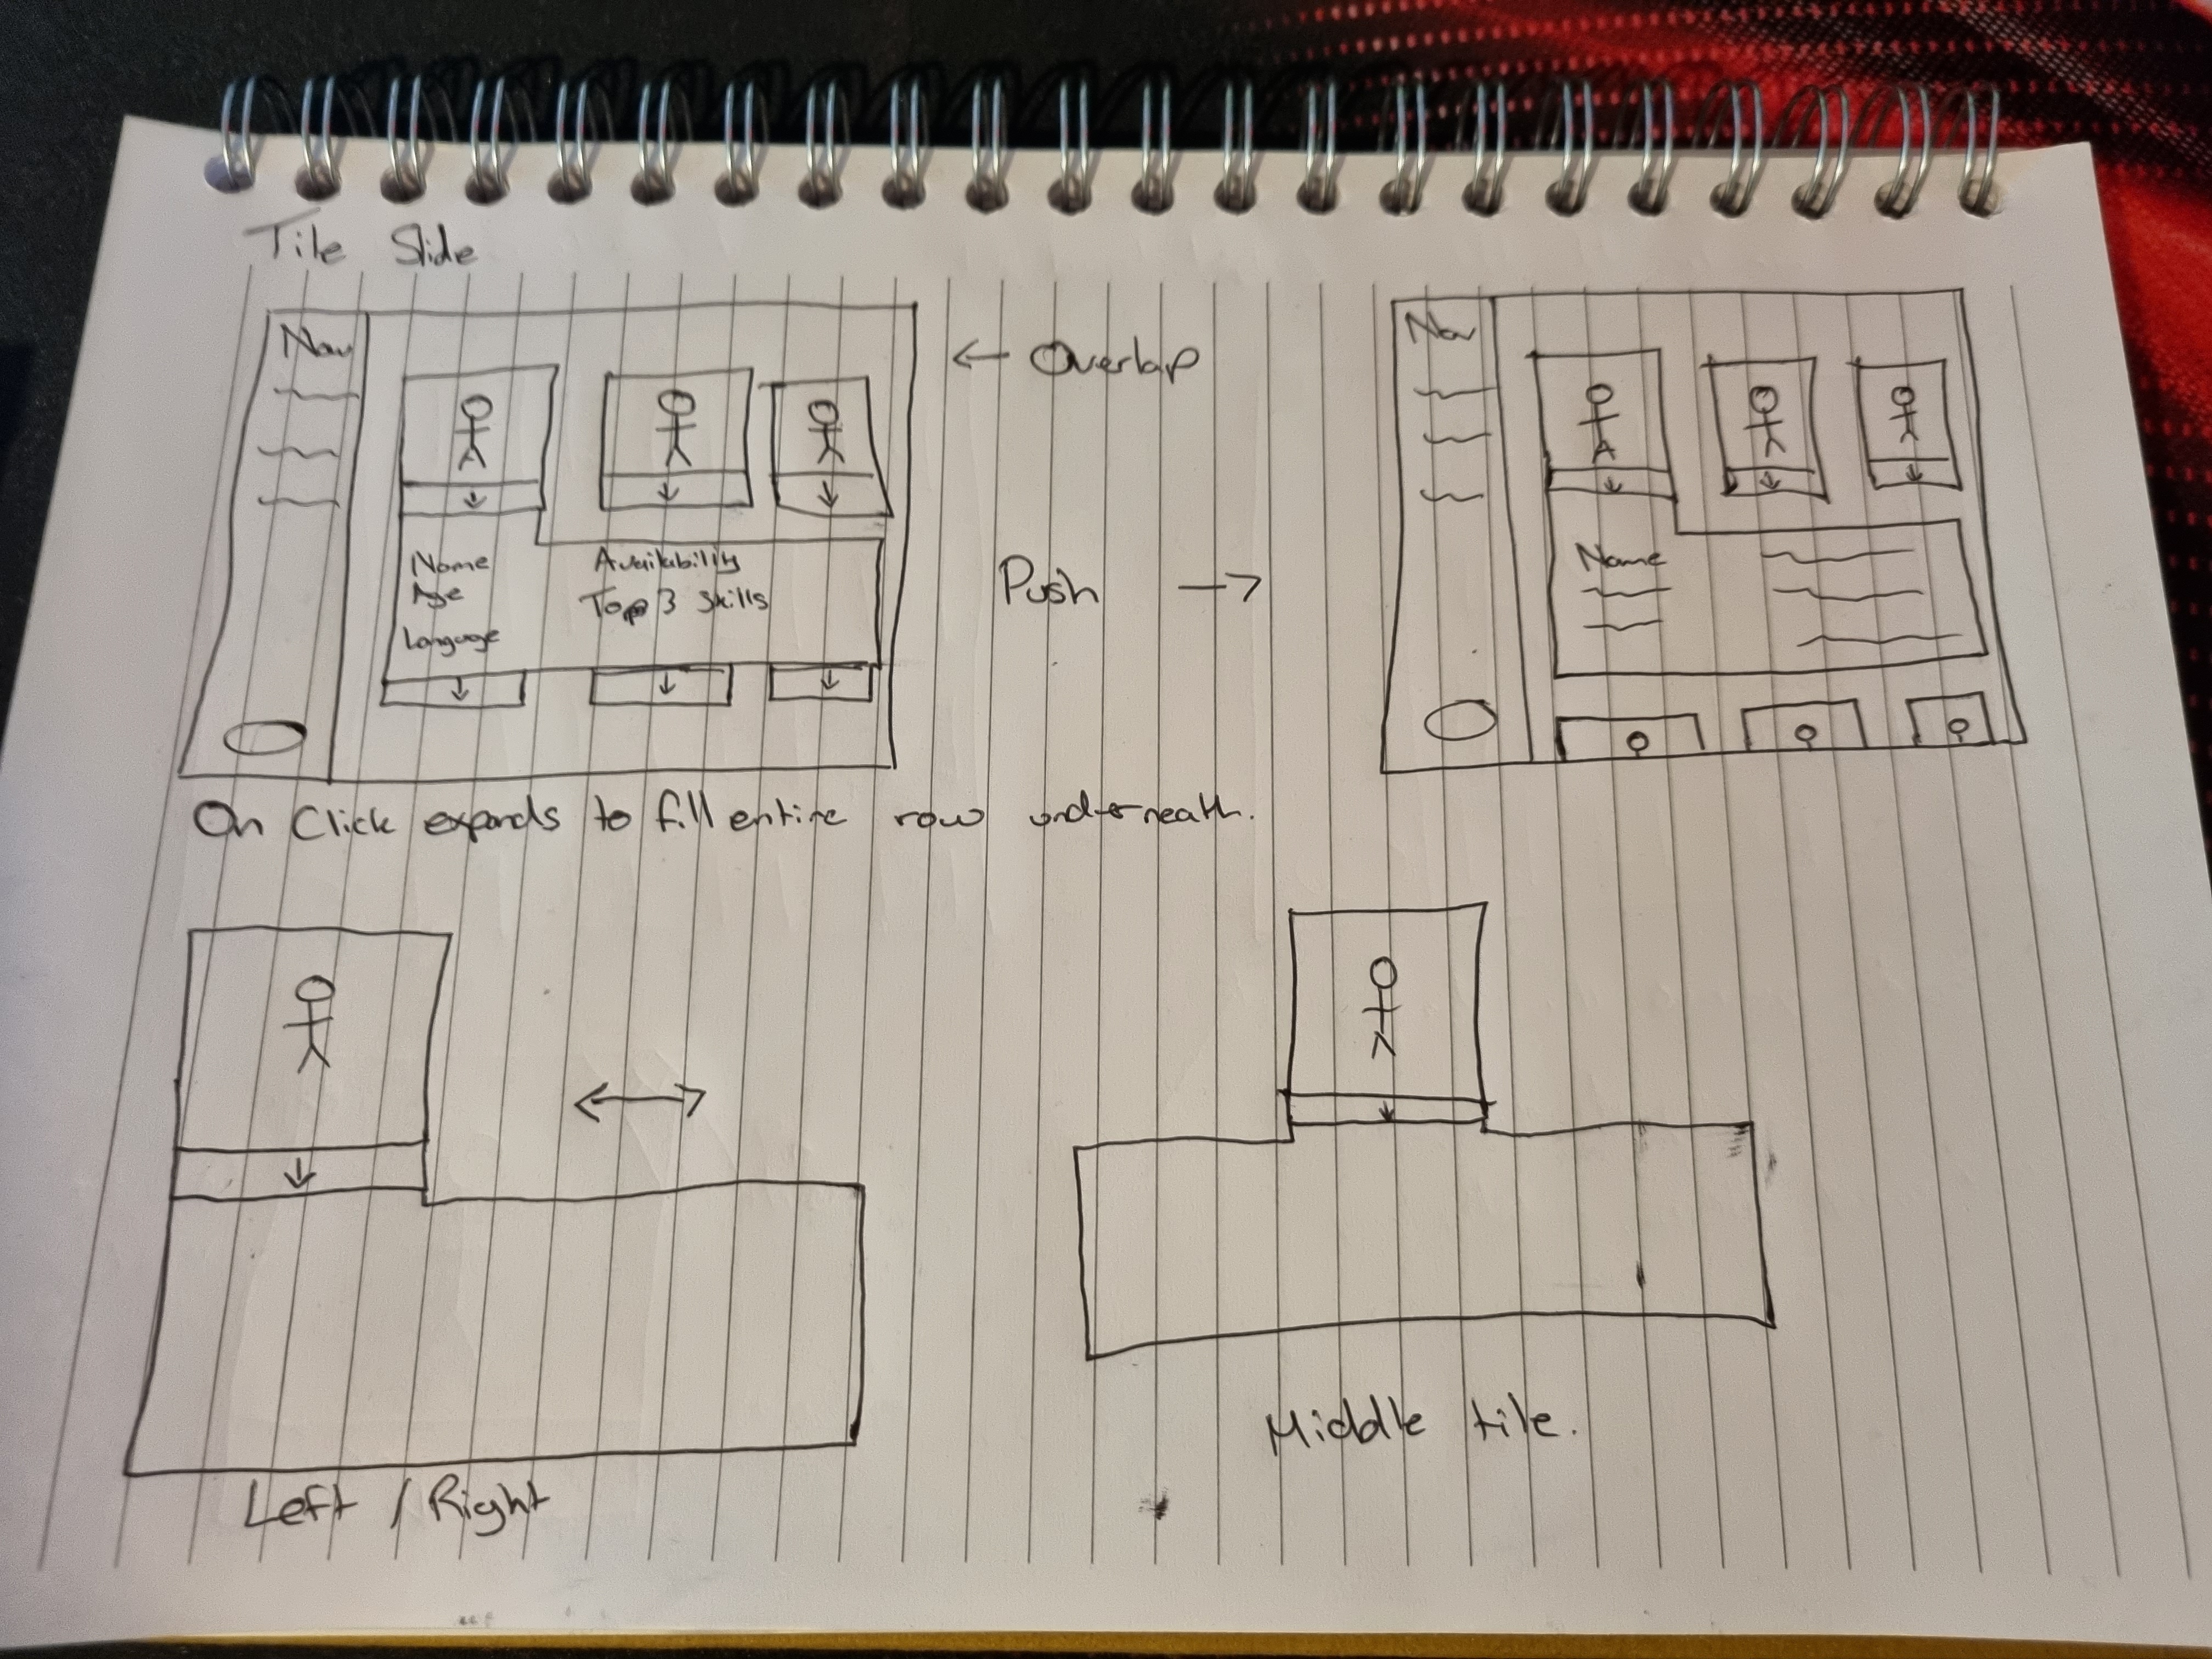 Tile Slide
Nav
← Overlap
Nav
Name
Age
Language
Availability
Top 3 Skills
Push →
Name
On Click expands to fill entire row underneath.
Left / Right
Middle tile.